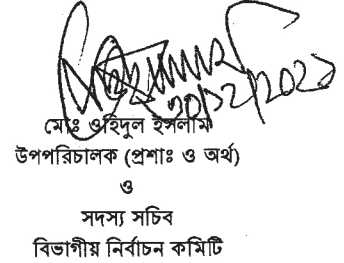 ২০/১২/২০২১
মোঃ ওহিদুল ইসলাম
উপপরিচালক (প্রশাঃ ও অর্থ)
ও
সদস্য সচিব
বিভাগীয় নির্বাচন কমিটি